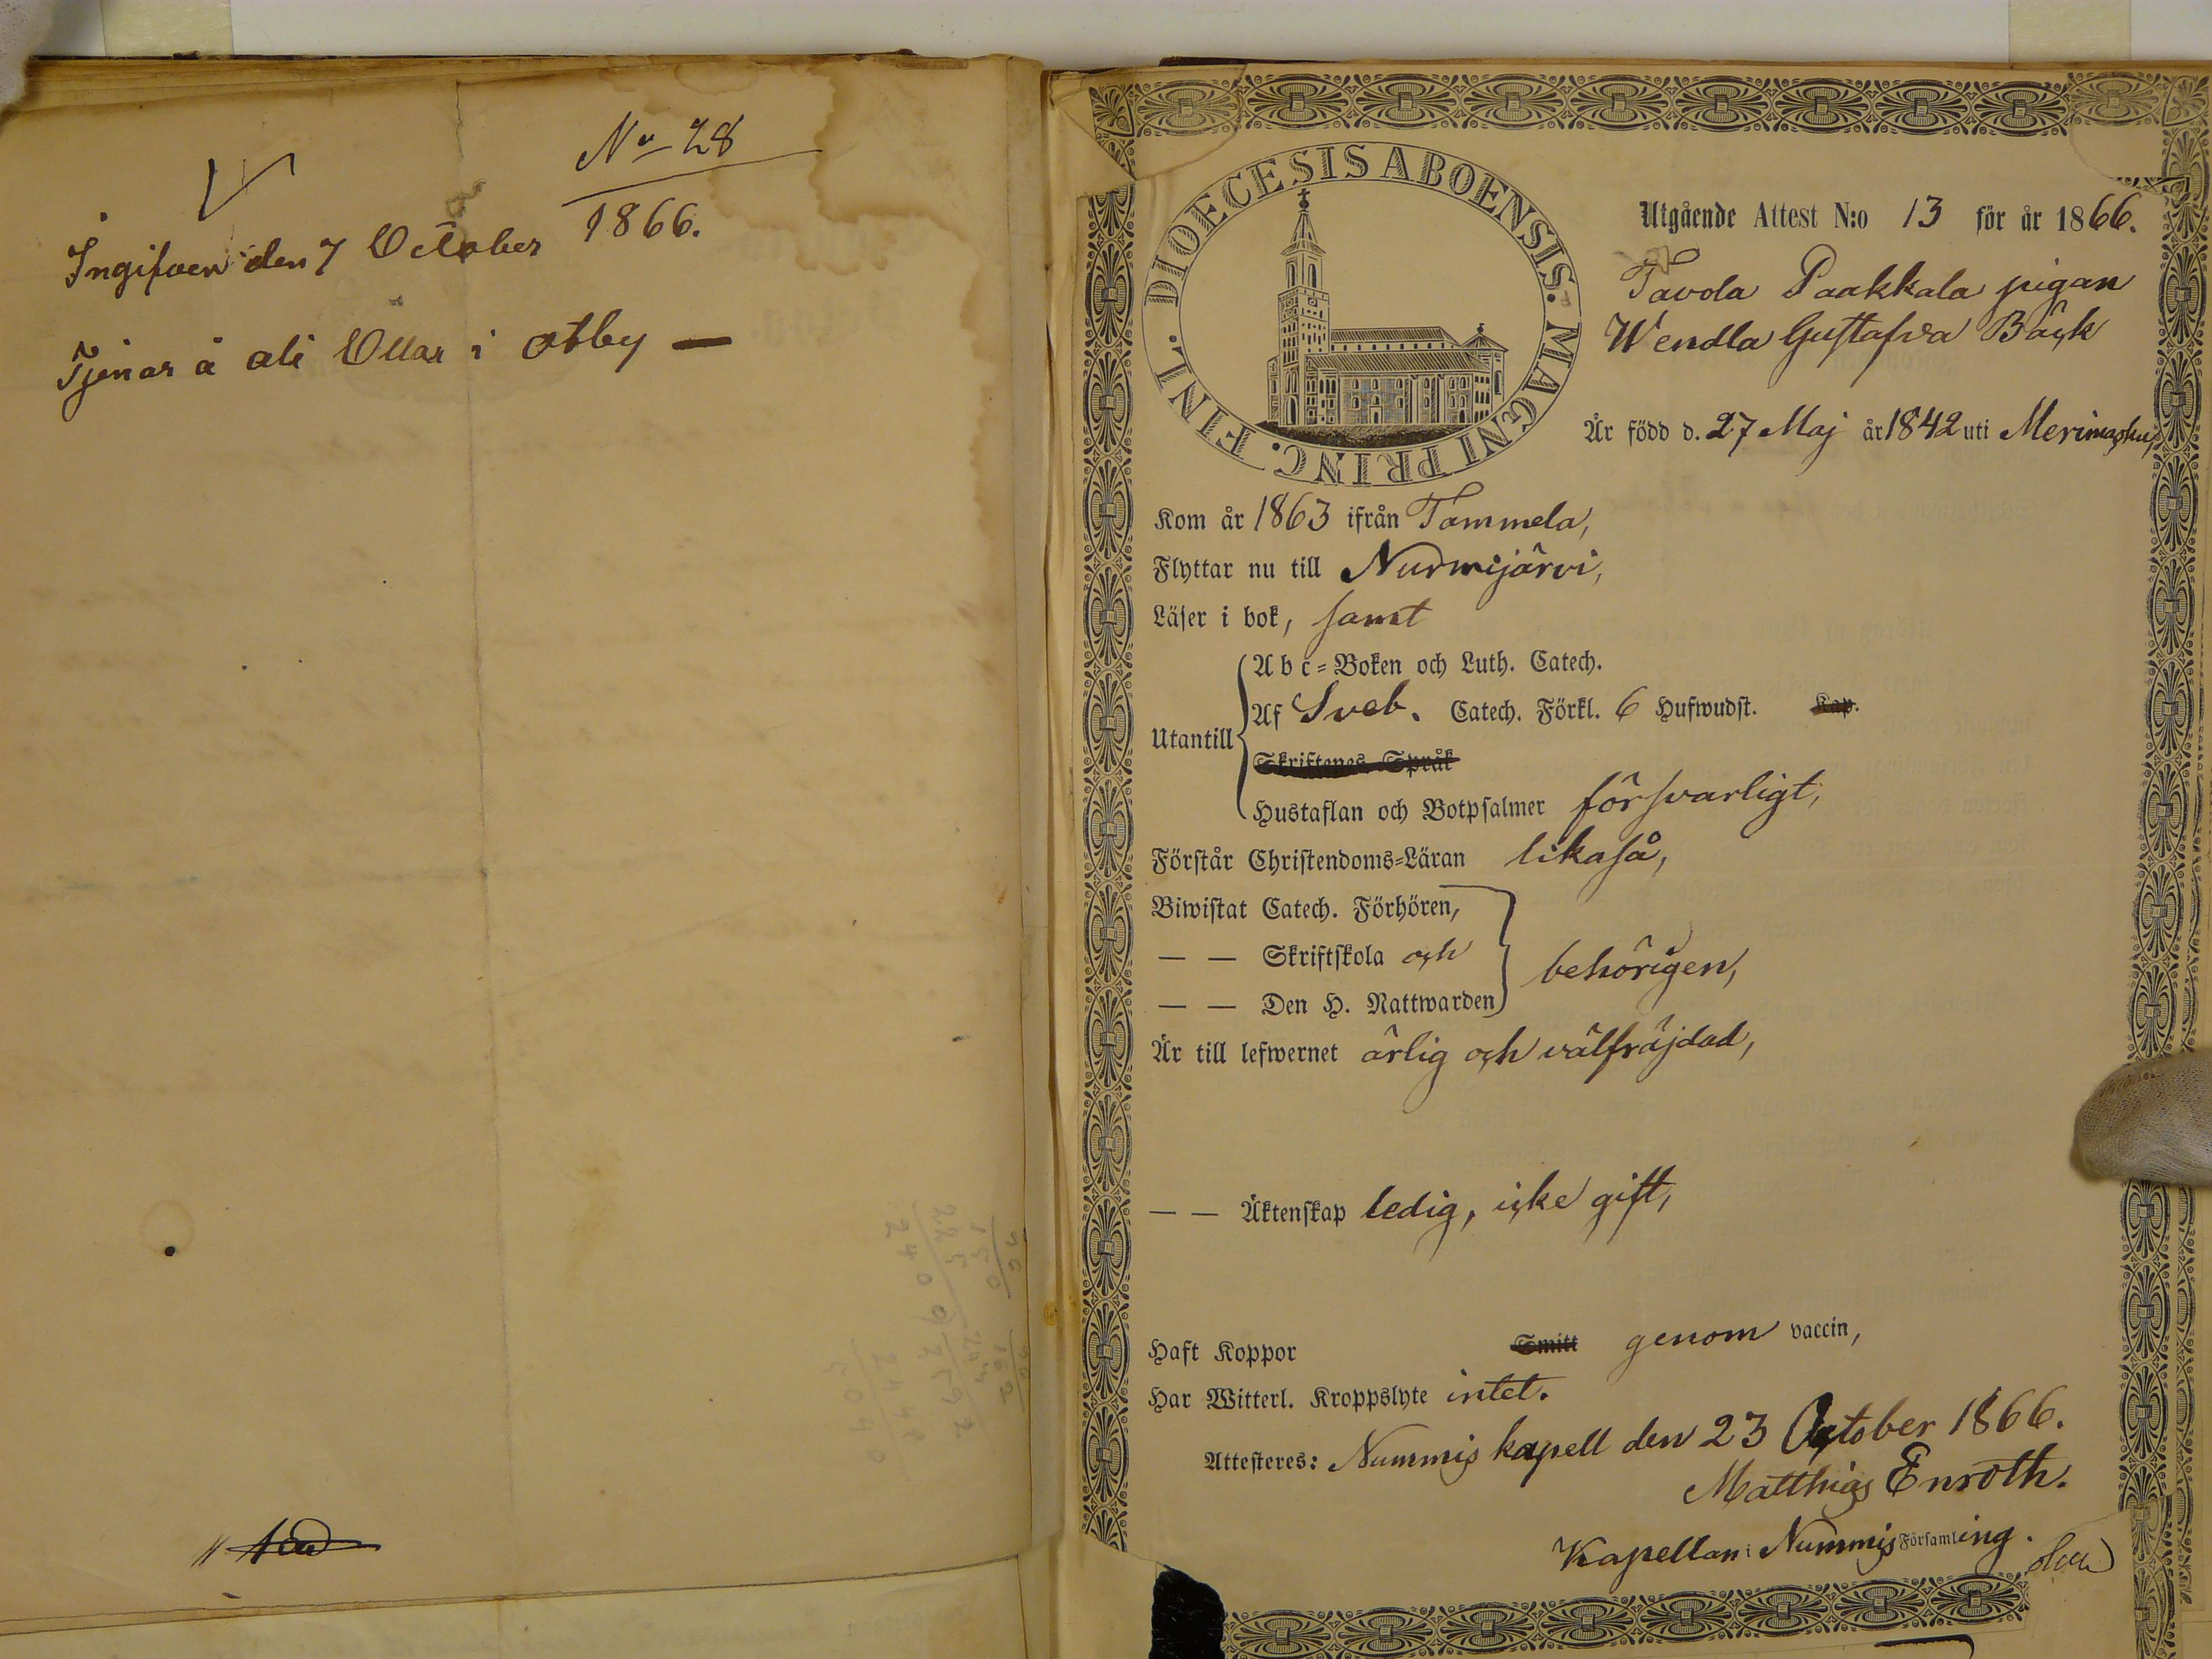 No 28
1866.
Ingifven den 7 October
Tjenar å ali Ollas i
DIOECESIS ABOENSIS. MAGNI PRINC. FINL.
Utgående Attest N:o 13 för år 1866.
Tavola Paakkala pigan
Wendla Gustafva Bäck
Är född d. 27 Maj år 1842 uti Merimasku,
Kom år 1863 ifrån Tammela,
Flyttar nu till Nurmijärvi,
Läser i bok, samt
Utantill
Abc=Boken och Luth. Catech.
Af Sveb. Catech. Förkl. 6 Hufwudst. Kap.
Skriftenes Språk
Hustaflan och Botpsalmer försvarligt,
Förstår Christendoms=Läran likaså,
Biwistat Catech. Förhören,
— — Skriftskola och
behörigen,
— — Den H. Nattwarden
Är till lefwernet ärlig och välfräjdad,
— — Äktenskap ledig, icke gift,
Haft Koppor Smitt genom vaccin,
Har Witterl. Kroppslyte intet.
Attesteres: Nummis kapell den 23 October 1866.
Matthias Enroth.
Kapellan i Nummis Församling.